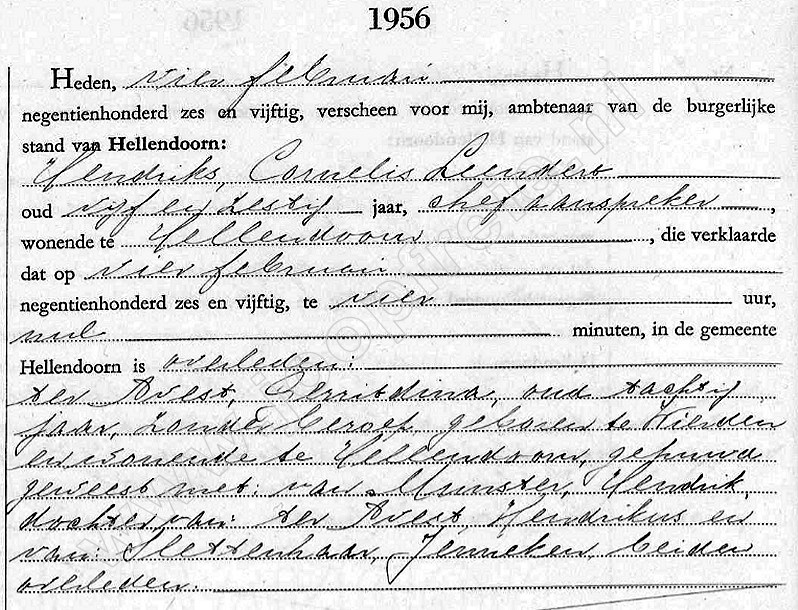 1956
Heden, vier februari
negentienhonderd zes en vijftig, verscheen voor mij, ambtenaar van de burgerlijke
stand van Hellendoorn:
Hendriks, Cornelis Leendert
oud vijf en zestig jaar, chef aanspreker,
wonende te Hellendoorn, die verklaarde
dat op vier februari
negentienhonderd zes en vijftig, te vier uur,
nul minuten, in de gemeente
Hellendoorn is overleden:
ter Avest, Gerritdina, oud tachtig
jaar, zonder beroep geboren te Wierden
en wonende te Hellendoorn, gehuwd
geweest met: van Munster, Hendrik,
dochter van: ter Avest, Hendrikus en
van: Slettenhaar, Jenneken, beiden
overleden.